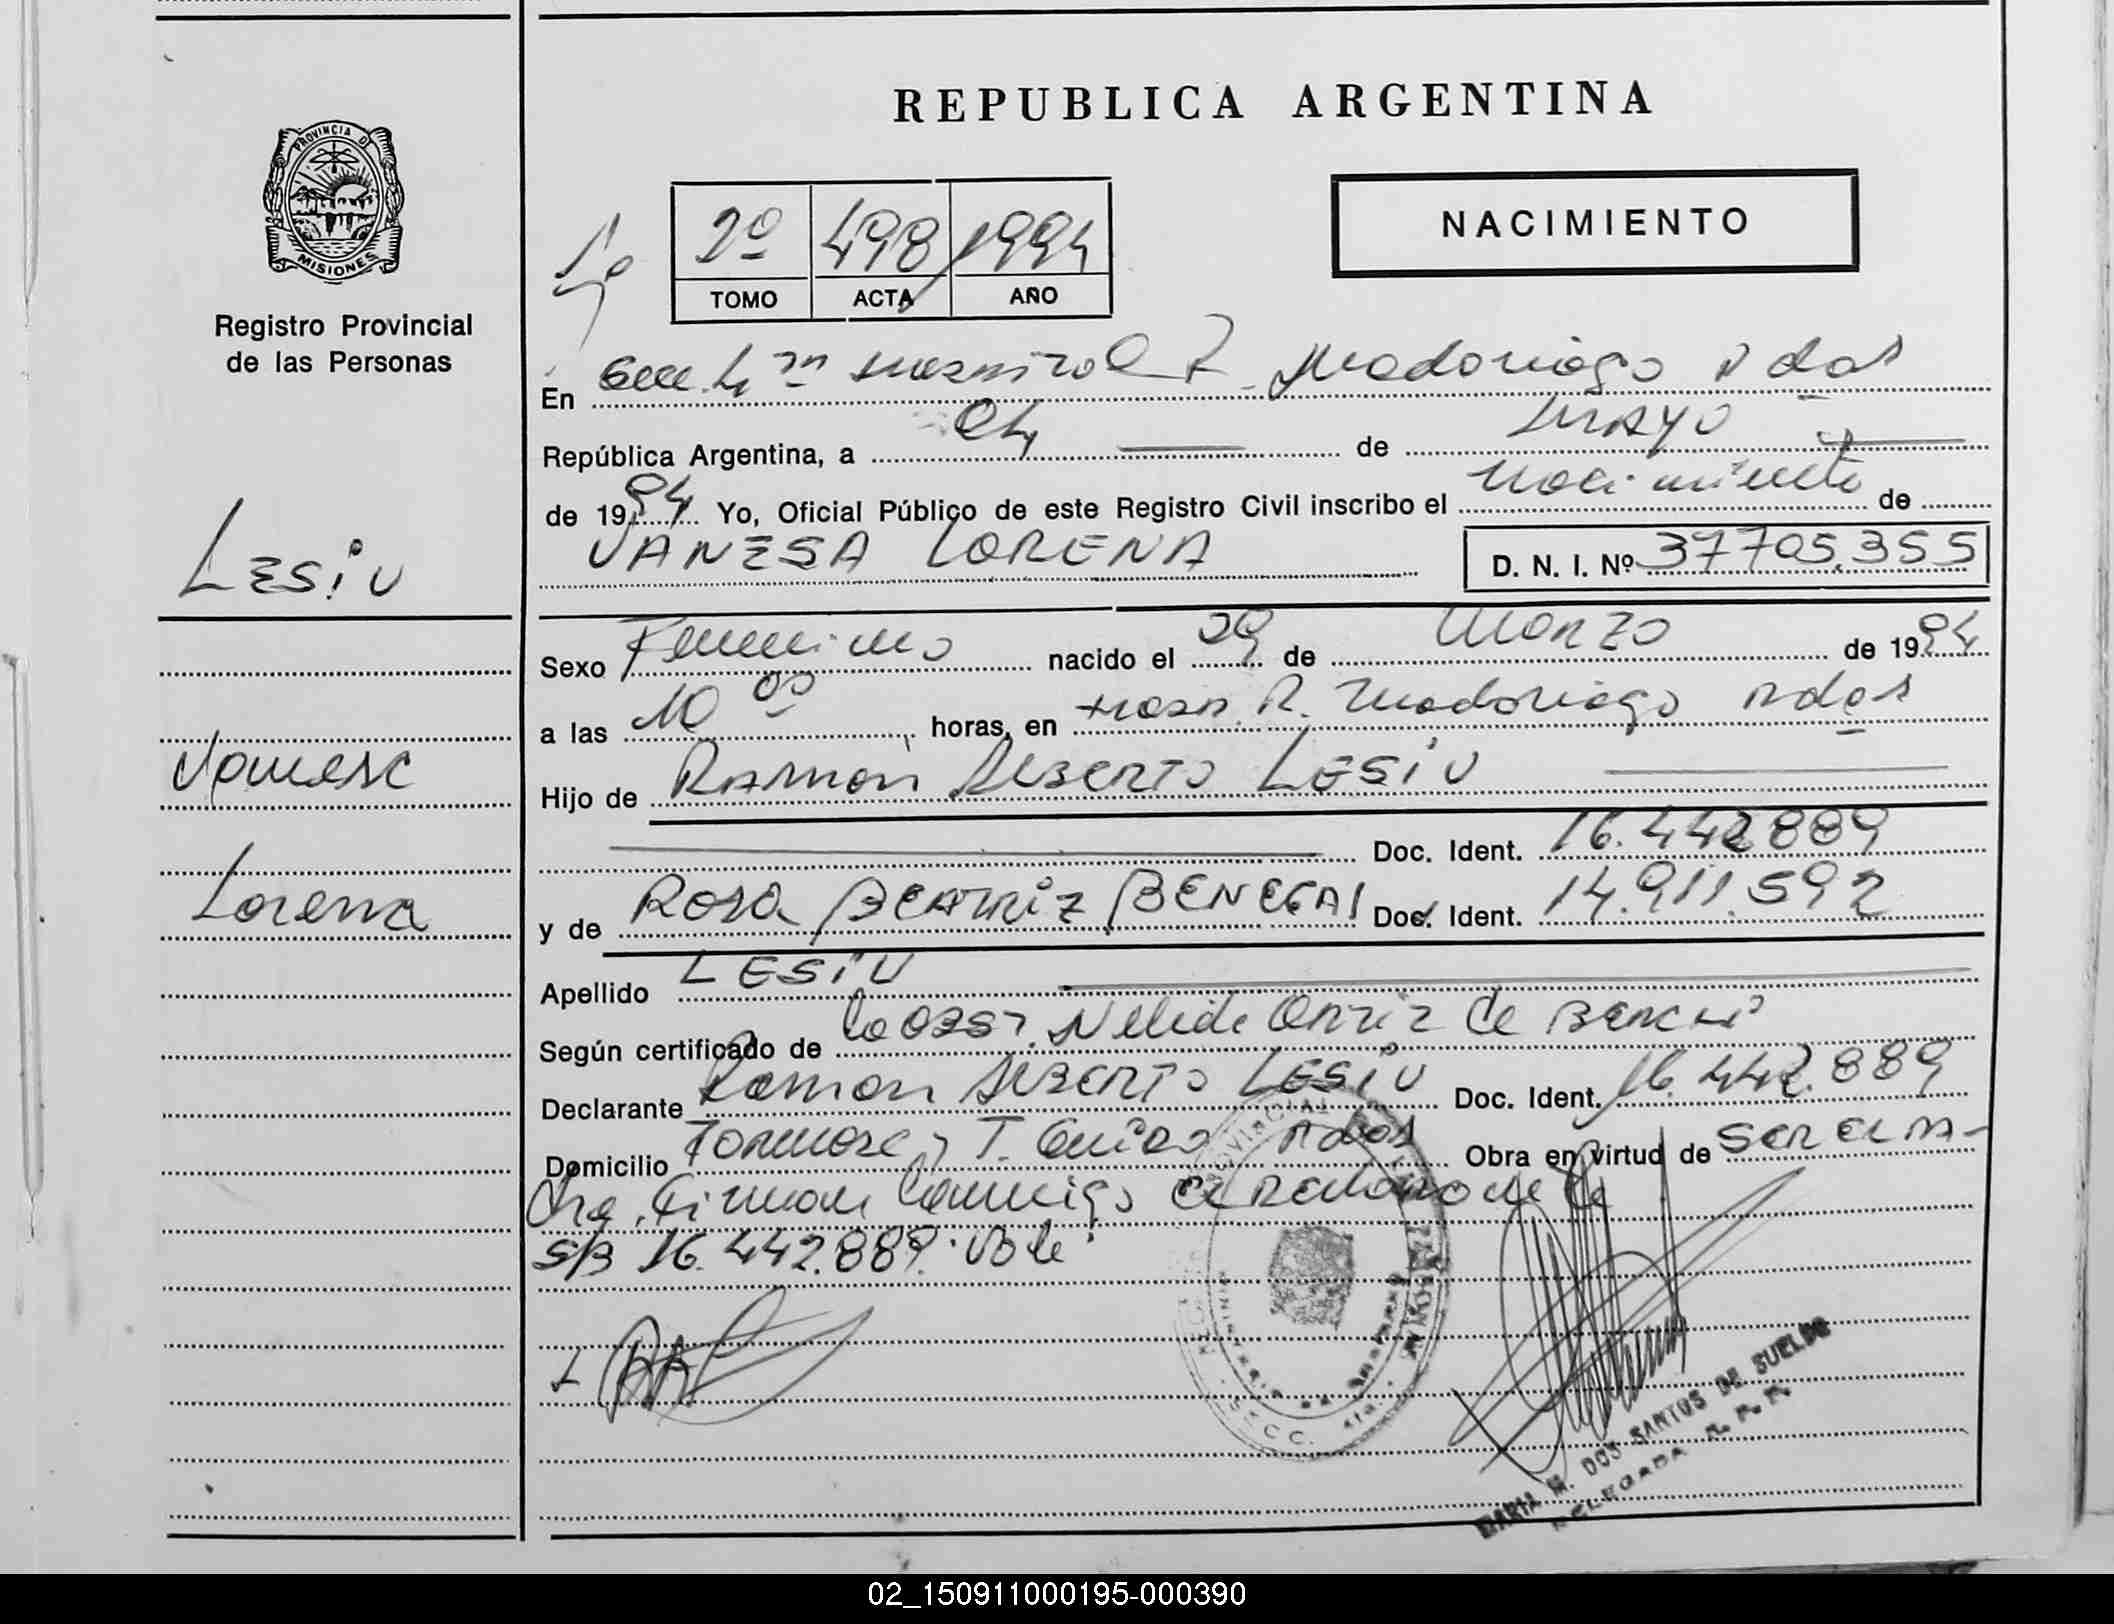 REPUBLICA ARGENTINA
PROVINCIA DE
MISIONES
Registro Provincial
de las Personas
NACIMIENTO
2º 498 1994
TOMO ACTA AÑO
En R. Madariaga Pdas
República Argentina, a 04 de Mayo
de 1994 Yo, Oficial Público de este Registro Civil inscribo el nacimiento de
VANESA LORENA D. N. I. Nº 37705.355
LESiU
Sexo Femenino nacido el 29 de Marzo de 1994
a las 10 00 horas, en Hosp. R. Madariaga Pdas
Vanesa
Hijo de RAMON ALBERTO LESiU
Doc. Ident. 16.442889
Lorena
y de ROSA BEATRIZ BENEGAS Doc. Ident. 14.911.592
Apellido LESiU
Según certificado de la OBST. Nelida Ortiz de
Declarante Ramon ALBERTO LESiU Doc. Ident. 16.442.889
Domicilio Pdas Obra en virtud de SER EL PA-
dre. Firman conmigo el declarante
S/B 16.442.889. Vale
MARIA M. DOS SANTOS DE SUELDO
DELEGADA R. P. P.
02_150911000195-000390